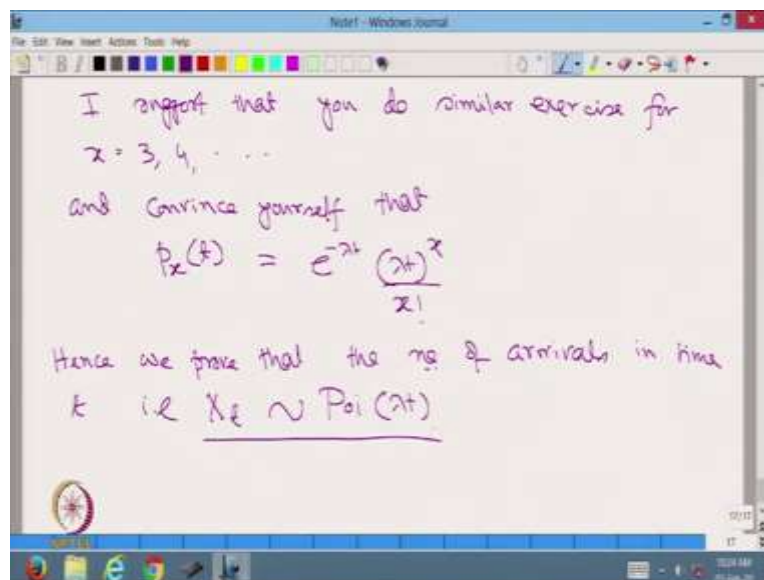 Note1 - Windows Journal
File Edit View Insert Actions Tools Help
I suggest that you do similar exercise for
x = 3, 4, ....
and convince yourself that
p_x(t) = e^{-λt} (λt)^x / x!
Hence we prove that the no of arrivals in time
t i.e X_t ~ Poi(λt)
NPTEL